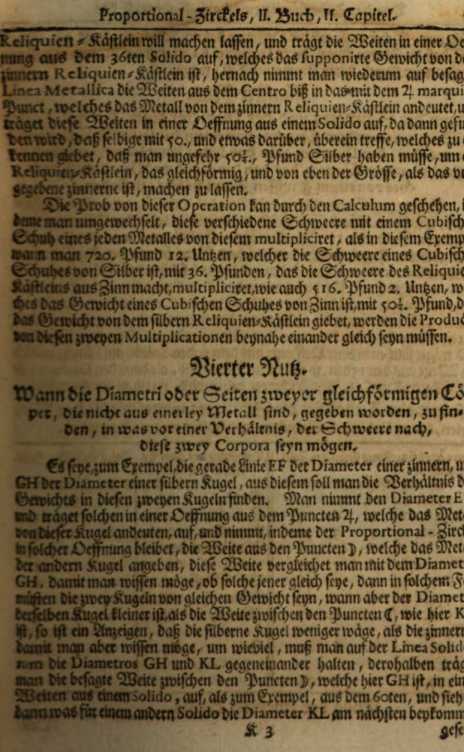 Proportional-Zirckels, II. Buch, II. Capitel.
Reliquien-Kästlein will machen lassen, und trägt die Weiten in einer Oe
nung aus dem 36ten Solido auf, welches das supponirte Gewicht von de
zinnern Reliquien-Kästlein ist, hernach nimmt man wiederum auf besag
Linea Metallica die Weiten aus dem Centro biß in das mit dem ♃ marqui
Punct, welches das Metall von dem zinnern Reliquien-Kästlein andeutet, u
träget diese Weiten in einer Oeffnung aus einem Solido auf, da dann gefu
den wird, daß selbige mit 50., und etwas darüber, überein treffe, welches zu
kennen giebet, daß man ungefehr 50½. Pfund Silber haben müsse, um
Reliquien-Kästlein, das gleichförmig, und von eben der Grösse, als das v
gegebene zinnerne ist, machen zu lassen.
Die Prob von dieser Operation kan durch den Calculum geschehen,
deme man umgewechselt, diese verschiedene Schweere mit einem Cubisch
Schuh eines jeden Metalles von diesem multipliciret, als in diesem Exemp
wann man 720. Pfund 12. Untzen, welcher die Schweere eines Cubisch
Schuhes von Silber ist, mit 36. Pfunden, das die Schweere des Relique
Kästleins aus Zinn macht, multipliciret, wie auch 516. Pfund 2. Untzen, w
ches das Gewicht eines Cubischen Schuhes von Zinn ist, mit 50½. Pfund, d
das Gewicht von dem silbern Reliquien-Kästlein giebet, werden die Produc
von diesen zweyen Multiplicationen beynahe einander gleich seyn müssen.
Vierter Nutz.
Wann die Diametri oder Seiten zweyer gleichförmigen Cö
per, die nicht aus einerley Metall sind, gegeben worden, zu fin-
den, in was vor einer Verhältnis, der Schweere nach,
diese zwey Corpora seyn mögen.
Es seye, zum Exempel, die gerade Linie EF der Diameter einer zinnern, u
GH der Diameter einer sübern Kugel, aus diesem soll man die Verhältnis d
Gewichts in diesen zweyen Kugeln finden. Man nimmt den Diameter E
und träget solchen in einer Oeffnung aus dem Puncten ♃, welche das Met
von dieser Kugel andeuten, auf, und nimmt, indeme der Proportional-Zirc
in solcher Oeffnung bleibet, die Weite aus den Puncten ☽, welche das Met
der andern Kugel angeben, diese Weite vergleichet man mit dem Diamet
GH. damit man wissen möge, ob solche jener gleich seye, dann in solchem F
müsten die zwey Kugeln von gleichen Gewicht seyn, wann aber der Diamet
derselben Kugel kleiner ist, als die Weite zwischen den Puncten ☾, wie hier K
ist, so ist ein Anzeigen, daß die süberne Kugel weniger wäge, als die zinnern
damit man aber wissen möge, um wieviel, muß man auf der Linea Solid
rum die Diametros GH und KL gegeneinander halten, derohalben träg
man die besagte Weite zwischen den Puncten ☽, welche hier GH ist, in ein
Weiten aus einem Solido, auf, als zum Exempel, aus dem 60ten, und sieh
dann was für einem andern Solido die Diameter KL am nächsten beykomm
K 3 gese